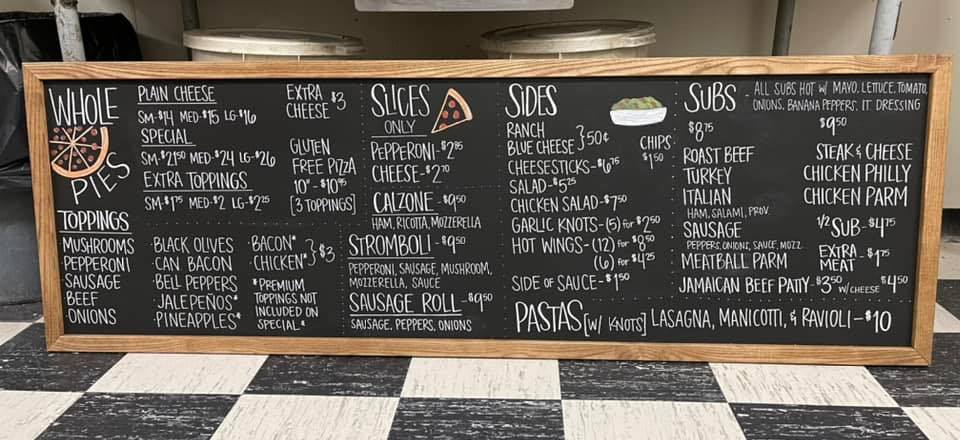 WHOLE
PIES
PLAIN CHEESE
SM-$14 MED-$15 LG-$16
SPECIAL
SM-$2150 MED-$24 LG-$26
EXTRA TOPPINGS
SM-$175 MED-$2 LG-$225
EXTRA
CHEESE $3
GLUTEN
FREE PIZZA
10"-$1095
[3 TOPPINGS]
TOPPINGS
MUSHROOMS
PEPPERONI
SAUSAGE
BEEF
ONIONS
·BLACK OLIVES
·CAN BACON
·BELL PEPPERS
·JALEPEÑOS*
·PINEAPPLES*
·BACON*
·CHICKEN* }$3
*PREMIUM
TOPPINGS NOT
INCLUDED ON
SPECIAL*
SLICES
ONLY
PEPPERONI-$285
CHEESE-$270
CALZONE-$950
HAM, RICOTTA, MOZZERELLA
STROMBOLI-$950
PEPPERONI, SAUSAGE, MUSHROOM,
MOZZERELLA, SAUCE
SAUSAGE ROLL-$950
SAUSAGE, PEPPERS, ONIONS
SIDES
RANCH
BLUE CHEESE }50¢
CHEESESTICKS-$675
SALAD-$525
CHICKEN SALAD-$750
GARLIC KNOTS-(5) for $250
HOT WINGS-(12) for $850
(6) for $425
SIDE OF SAUCE-$150
CHIPS-
$150
SUBS
ALL SUBS HOT W/ MAYO, LETTUCE, TOMATO,
ONIONS, BANANA PEPPERS, IT. DRESSING
$875
ROAST BEEF
TURKEY
ITALIAN
HAM, SALAMI, PROV.
SAUSAGE
PEPPERS, ONIONS, SAUCE, MOZZ.
MEATBALL PARM
$950
STEAK & CHEESE
CHICKEN PHILLY
CHICKEN PARM
1/2 SUB-$475
EXTRA
MEAT -$175
JAMAICAN BEEF PATTY-$350 W/CHEESE $450
PASTAS [W/ KNOTS] LASAGNA, MANICOTTI, & RAVIOLI-$10